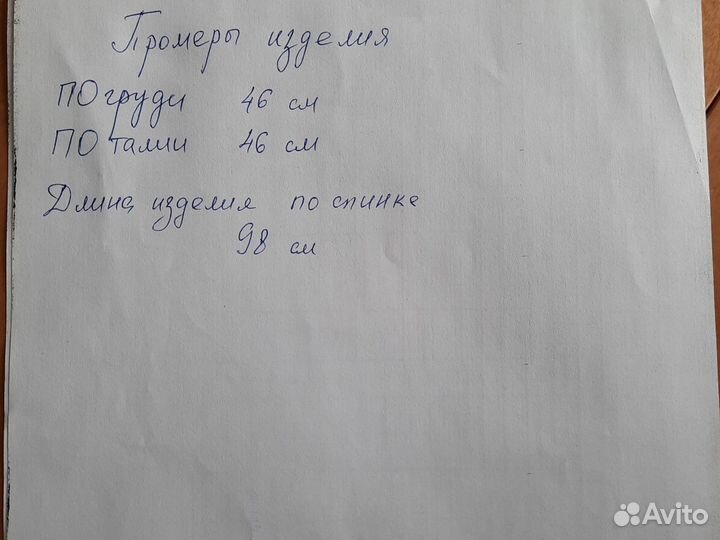 Промеры изделия
ПО груди 46 см
ПО талии 46 см
Длина изделия по спинке
98 см
Avito